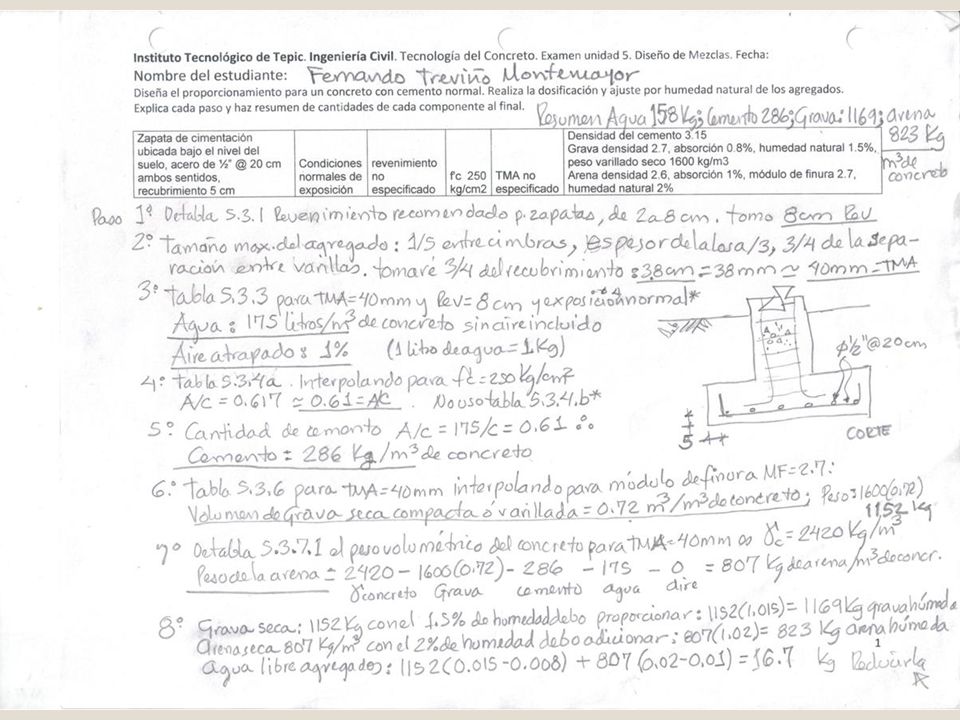 Instituto Tecnológico de Tepic. Ingeniería Civil. Tecnología del Concreto. Examen unidad 5. Diseño de Mezclas. Fecha:
Nombre del estudiante: Fernando Treviño Montemayor
Diseña el proporcionamiento para un concreto con cemento normal. Realiza la dosificación y ajuste por humedad natural de los agregados.
Explica cada paso y haz resumen de cantidades de cada componente al final.
Resumen Agua 158 Kg; Cemento 286; Grava: 1169; arena
823 Kg
m³ de
concreto
Zapata de cimentación
ubicada bajo el nivel del
suelo, acero de ½" @ 20 cm
ambos sentidos,
recubrimiento 5 cm
Condiciones
normales de
exposición
revenimiento
no
especificado
f'c 250
kg/cm2
TMA no
especificado
Densidad del cemento 3.15
Grava densidad 2.7, absorción 0.8%, humedad natural 1.5%,
peso varillado seco 1600 kg/m3
Arena densidad 2.6, absorción 1%, módulo de finura 2.7,
humedad natural 2%
Paso 1º De tabla 5.3.1 Revenimiento recomendado p. zapatas, de 2 a 8 cm. tomo 8cm Rev
2º Tamaño max. del agregado: 1/5 entre cimbras, espesor de la losa/3, 3/4 de la sepa-
ración entre varillas. tomaré 3/4 del recubrimiento: 3.8cm = 38mm ≃ 40mm = TMA
3º tabla 5.3.3 para TMA=40mm y Rev=8cm y exposición normal*
Agua: 175 litros/m³ de concreto sin aire incluido
Aire atrapado: 1% (1 litro de agua = 1Kg)
4º tabla 5.3.4a. Interpolando para f'c=250 Kg/cm²
A/c = 0.617 ≃ 0.61 = A/C. No uso tabla 5.3.4.b*
5º Cantidad de cemento A/c = 175/c = 0.61 ∴
Cemento = 286 Kg/m³ de concreto
ϕ½"@20cm
5
CORTE
6.º Tabla 5.3.6 para TMA=40mm interpolando para módulo de finura MF=2.7:
Volumen de Grava seca compacta ó varillada = 0.72 m³/m³ de concreto; Peso: 1600(0.72)
1152 Kg
7º De tabla 5.3.7.1 el peso volumétrico del concreto para TMA=40mm es γc = 2420 Kg/m³
Peso de la arena = 2420 - 1600(0.72) - 286 - 175 - 0 = 807 Kg de arena/m³ de concr.
γconcreto Grava cemento agua aire
8º Grava seca: 1152 Kg con el 1.5% de humedad debo proporcionar: 1152(1.015) = 1169 Kg grava húmeda
Arena seca 807 Kg/m³ con el 2% de humedad debo adicionar: 807(1.02) = 823 Kg arena húmeda
1
Agua libre agregados: 1152(0.015-0.008) + 807(0.02-0.01) = 16.7 Kg Reducirla